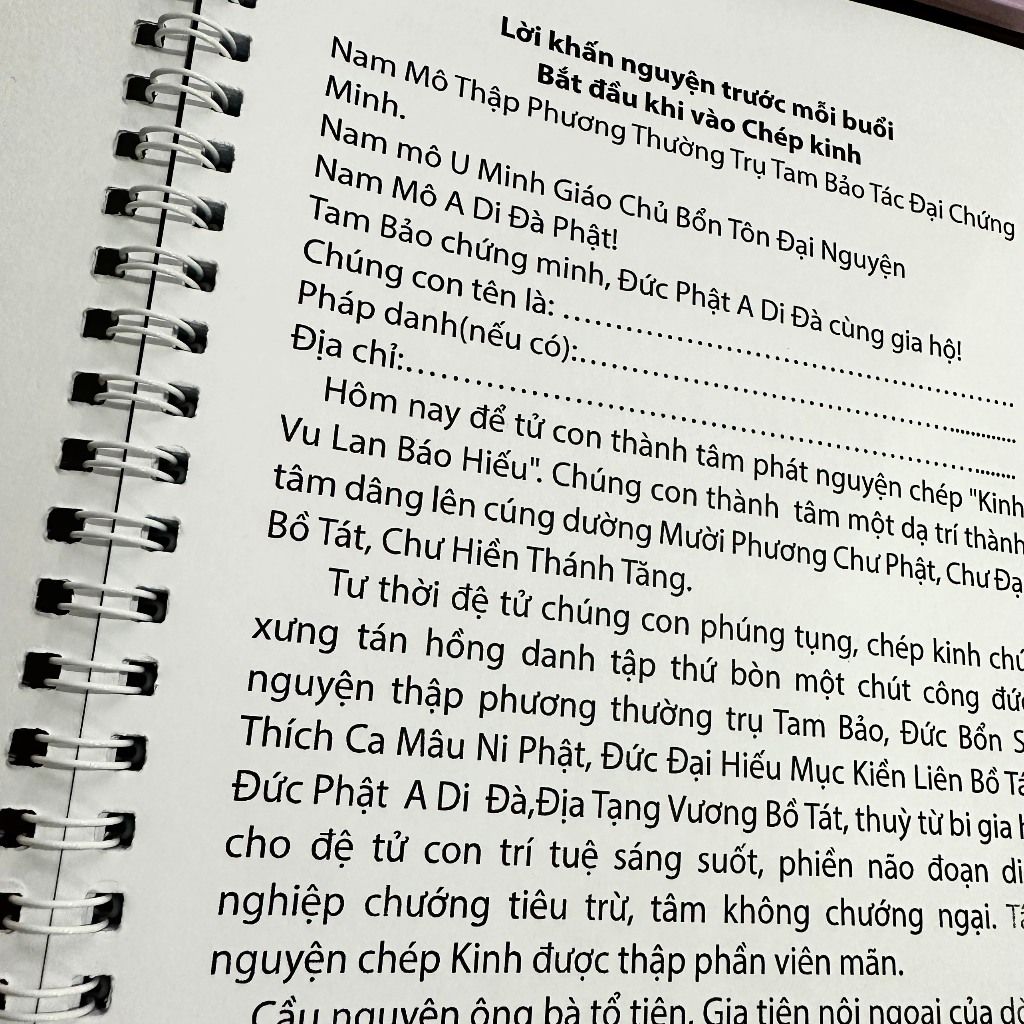 Lời khấn nguyện trước mỗi buổi
Bắt đầu khi vào Chép kinh
Nam Mô Thập Phương Thường Trụ Tam Bảo Tác Đại Chứng
Minh.
Nam mô U Minh Giáo Chủ Bổn Tôn Đại Nguyện
Nam Mô A Di Đà Phật!
Tam Bảo chứng minh, Đức Phật A Di Đà cùng gia hộ!
Chúng con tên là: ......................................................
Pháp danh(nếu có):......................................................
Địa chỉ:......................................................
Hôm nay để tử con thành tâm phát nguyện chép "Kinh
Vu Lan Báo Hiếu". Chúng con thành tâm một dạ trí thành
tâm dâng lên cúng dường Mười Phương Chư Phật, Chư Đạ
Bồ Tát, Chư Hiền Thánh Tăng.
Tư thời đệ tử chúng con phúng tụng, chép kinh chú
xưng tán hồng danh tập thứ bòn một chút công đức
nguyện thập phương thường trụ Tam Bảo, Đức Bổn S
Thích Ca Mâu Ni Phật, Đức Đại Hiếu Mục Kiền Liên Bồ Tá
Đức Phật A Di Đà,Địa Tạng Vương Bồ Tát, thuỳ từ bi gia h
cho đệ tử con trí tuệ sáng suốt, phiền não đoạn di
nghiệp chướng tiêu trừ, tâm không chướng ngại.
nguyện chép Kinh được thập phần viên mãn.
Cầu nguyện ông bà tổ tiên, Gia tiên nội ngoại của dò